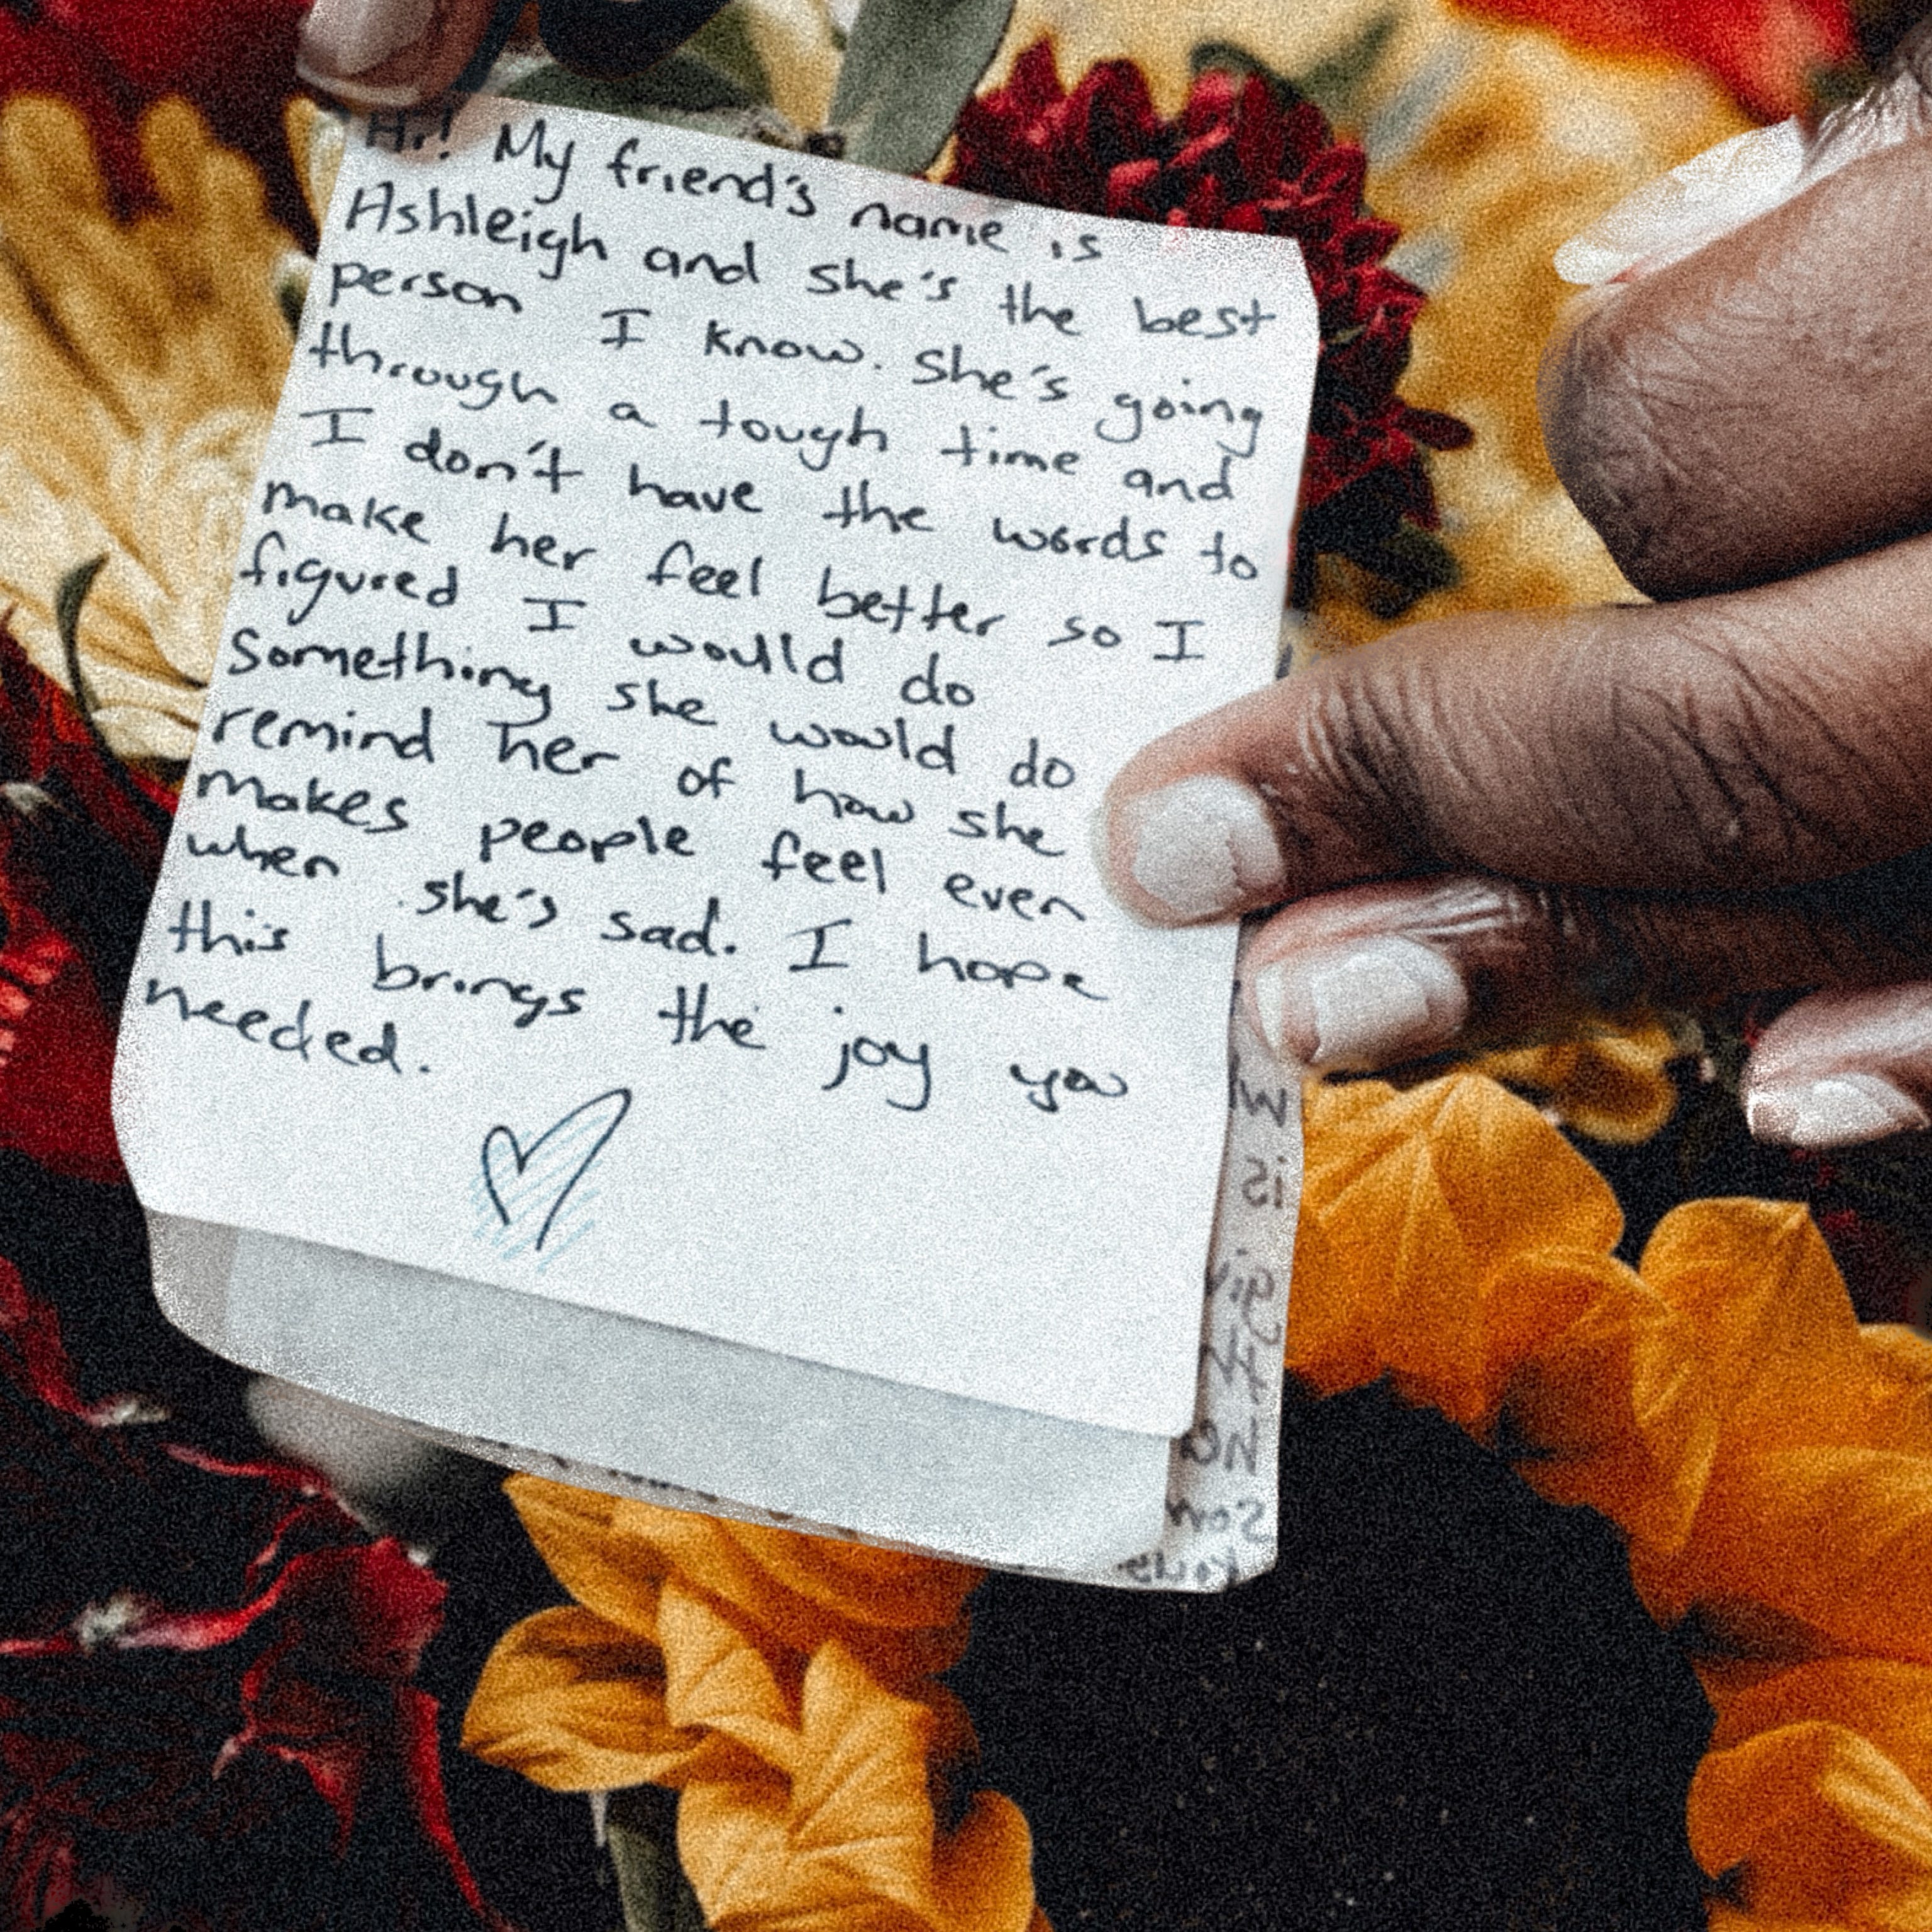 Hi! My friend's name is
Ashleigh and she's the best
person I know. She's going
through a tough time and
I don't have the words to
make her feel better so I
figured I would do
something she would do
remind her of how she
makes people feel even
when she's sad. I hope
this brings the joy you
needed.
is